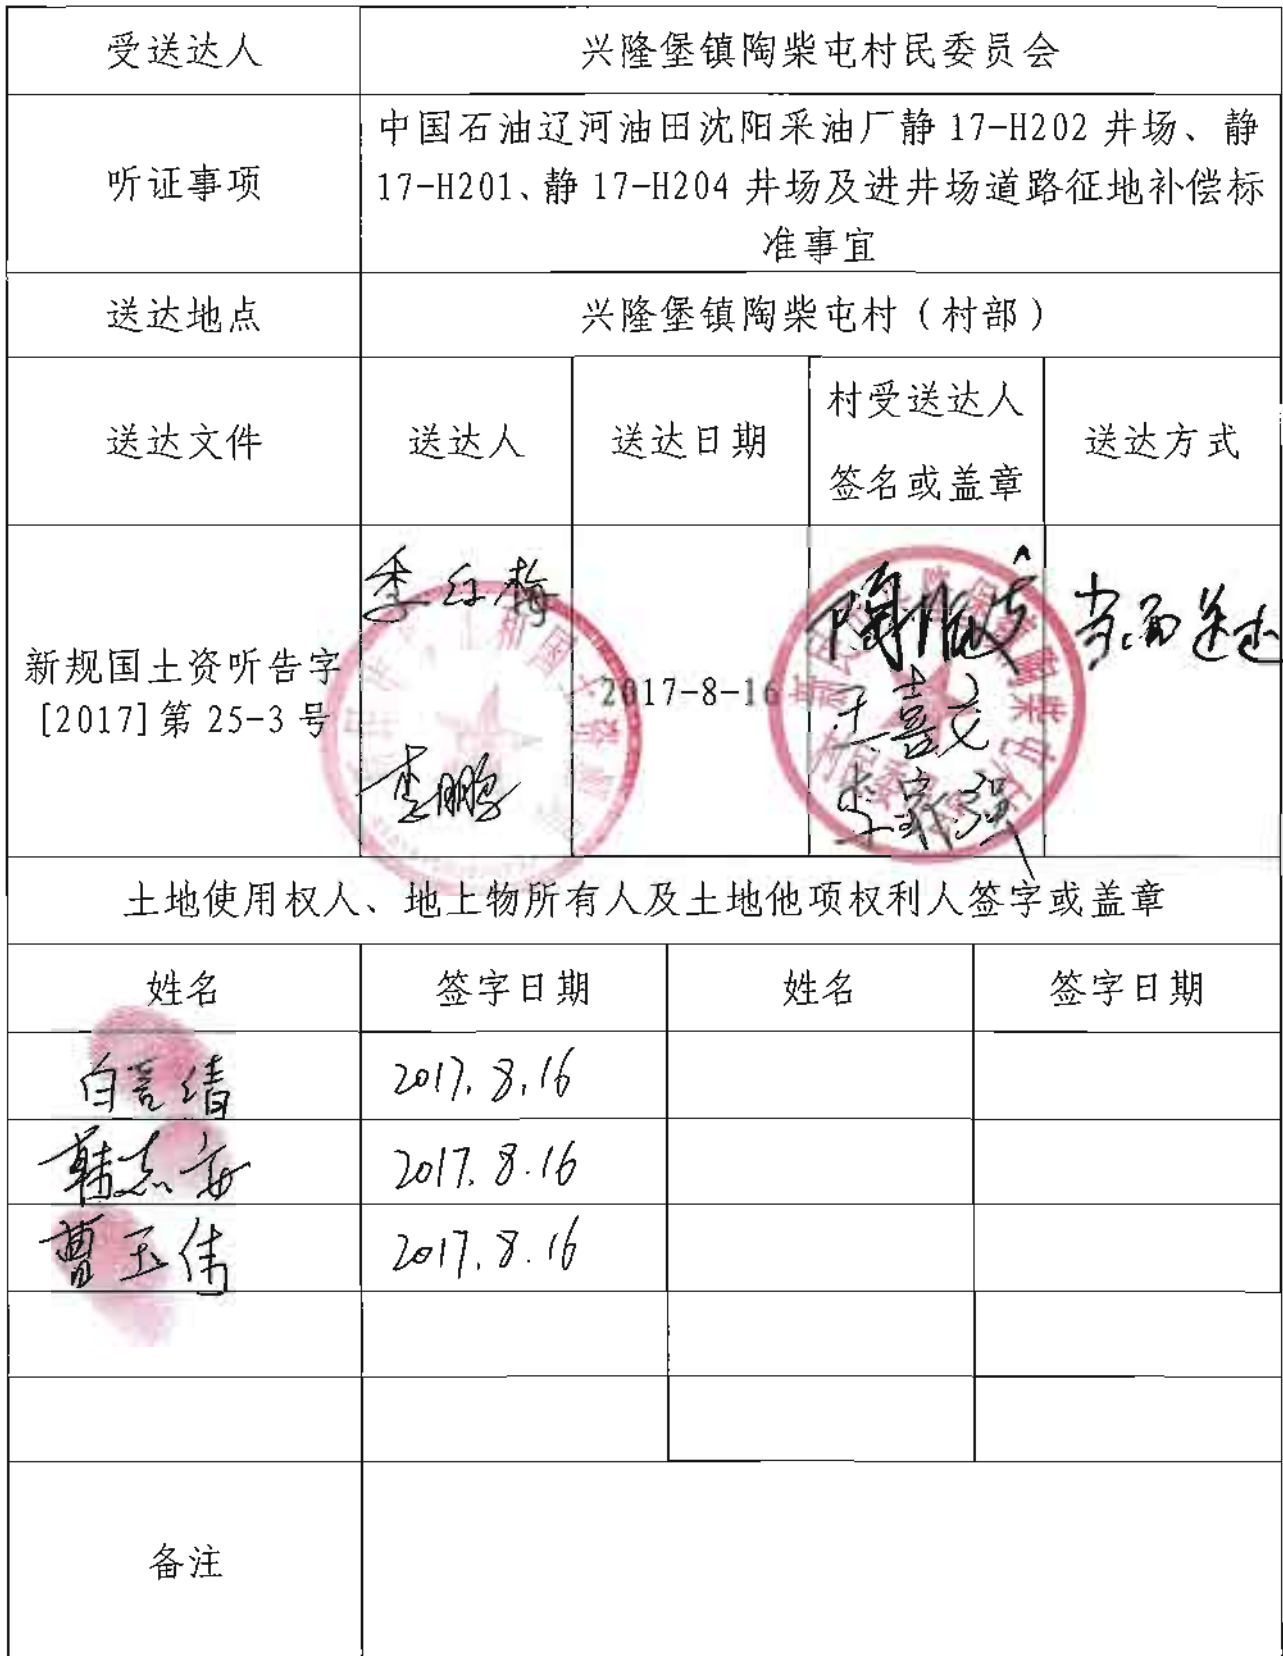 受送达人 兴隆堡镇陶柴屯村民委员会
中国石油辽河油田沈阳采油厂静 17-H202 井场、静
听证事项 17-H201、静 17-H204 井场及进井场道路征地补偿标
准事宜
送达地点 兴隆堡镇陶柴屯村（村部）
送达文件 送达人 送达日期 村受送达人 送达方式
签名或盖章
新规国土资听告字
[2017]第 25-3 号
季红梅
李鹏
2017-8-16
王喜文
李家强
当面送达
土地使用权人、地上物所有人及土地他项权利人签字或盖章
姓名 签字日期 姓名 签字日期
2017.8.16
韩志安 2017.8.16
曹玉伟 2017.8.16
备注